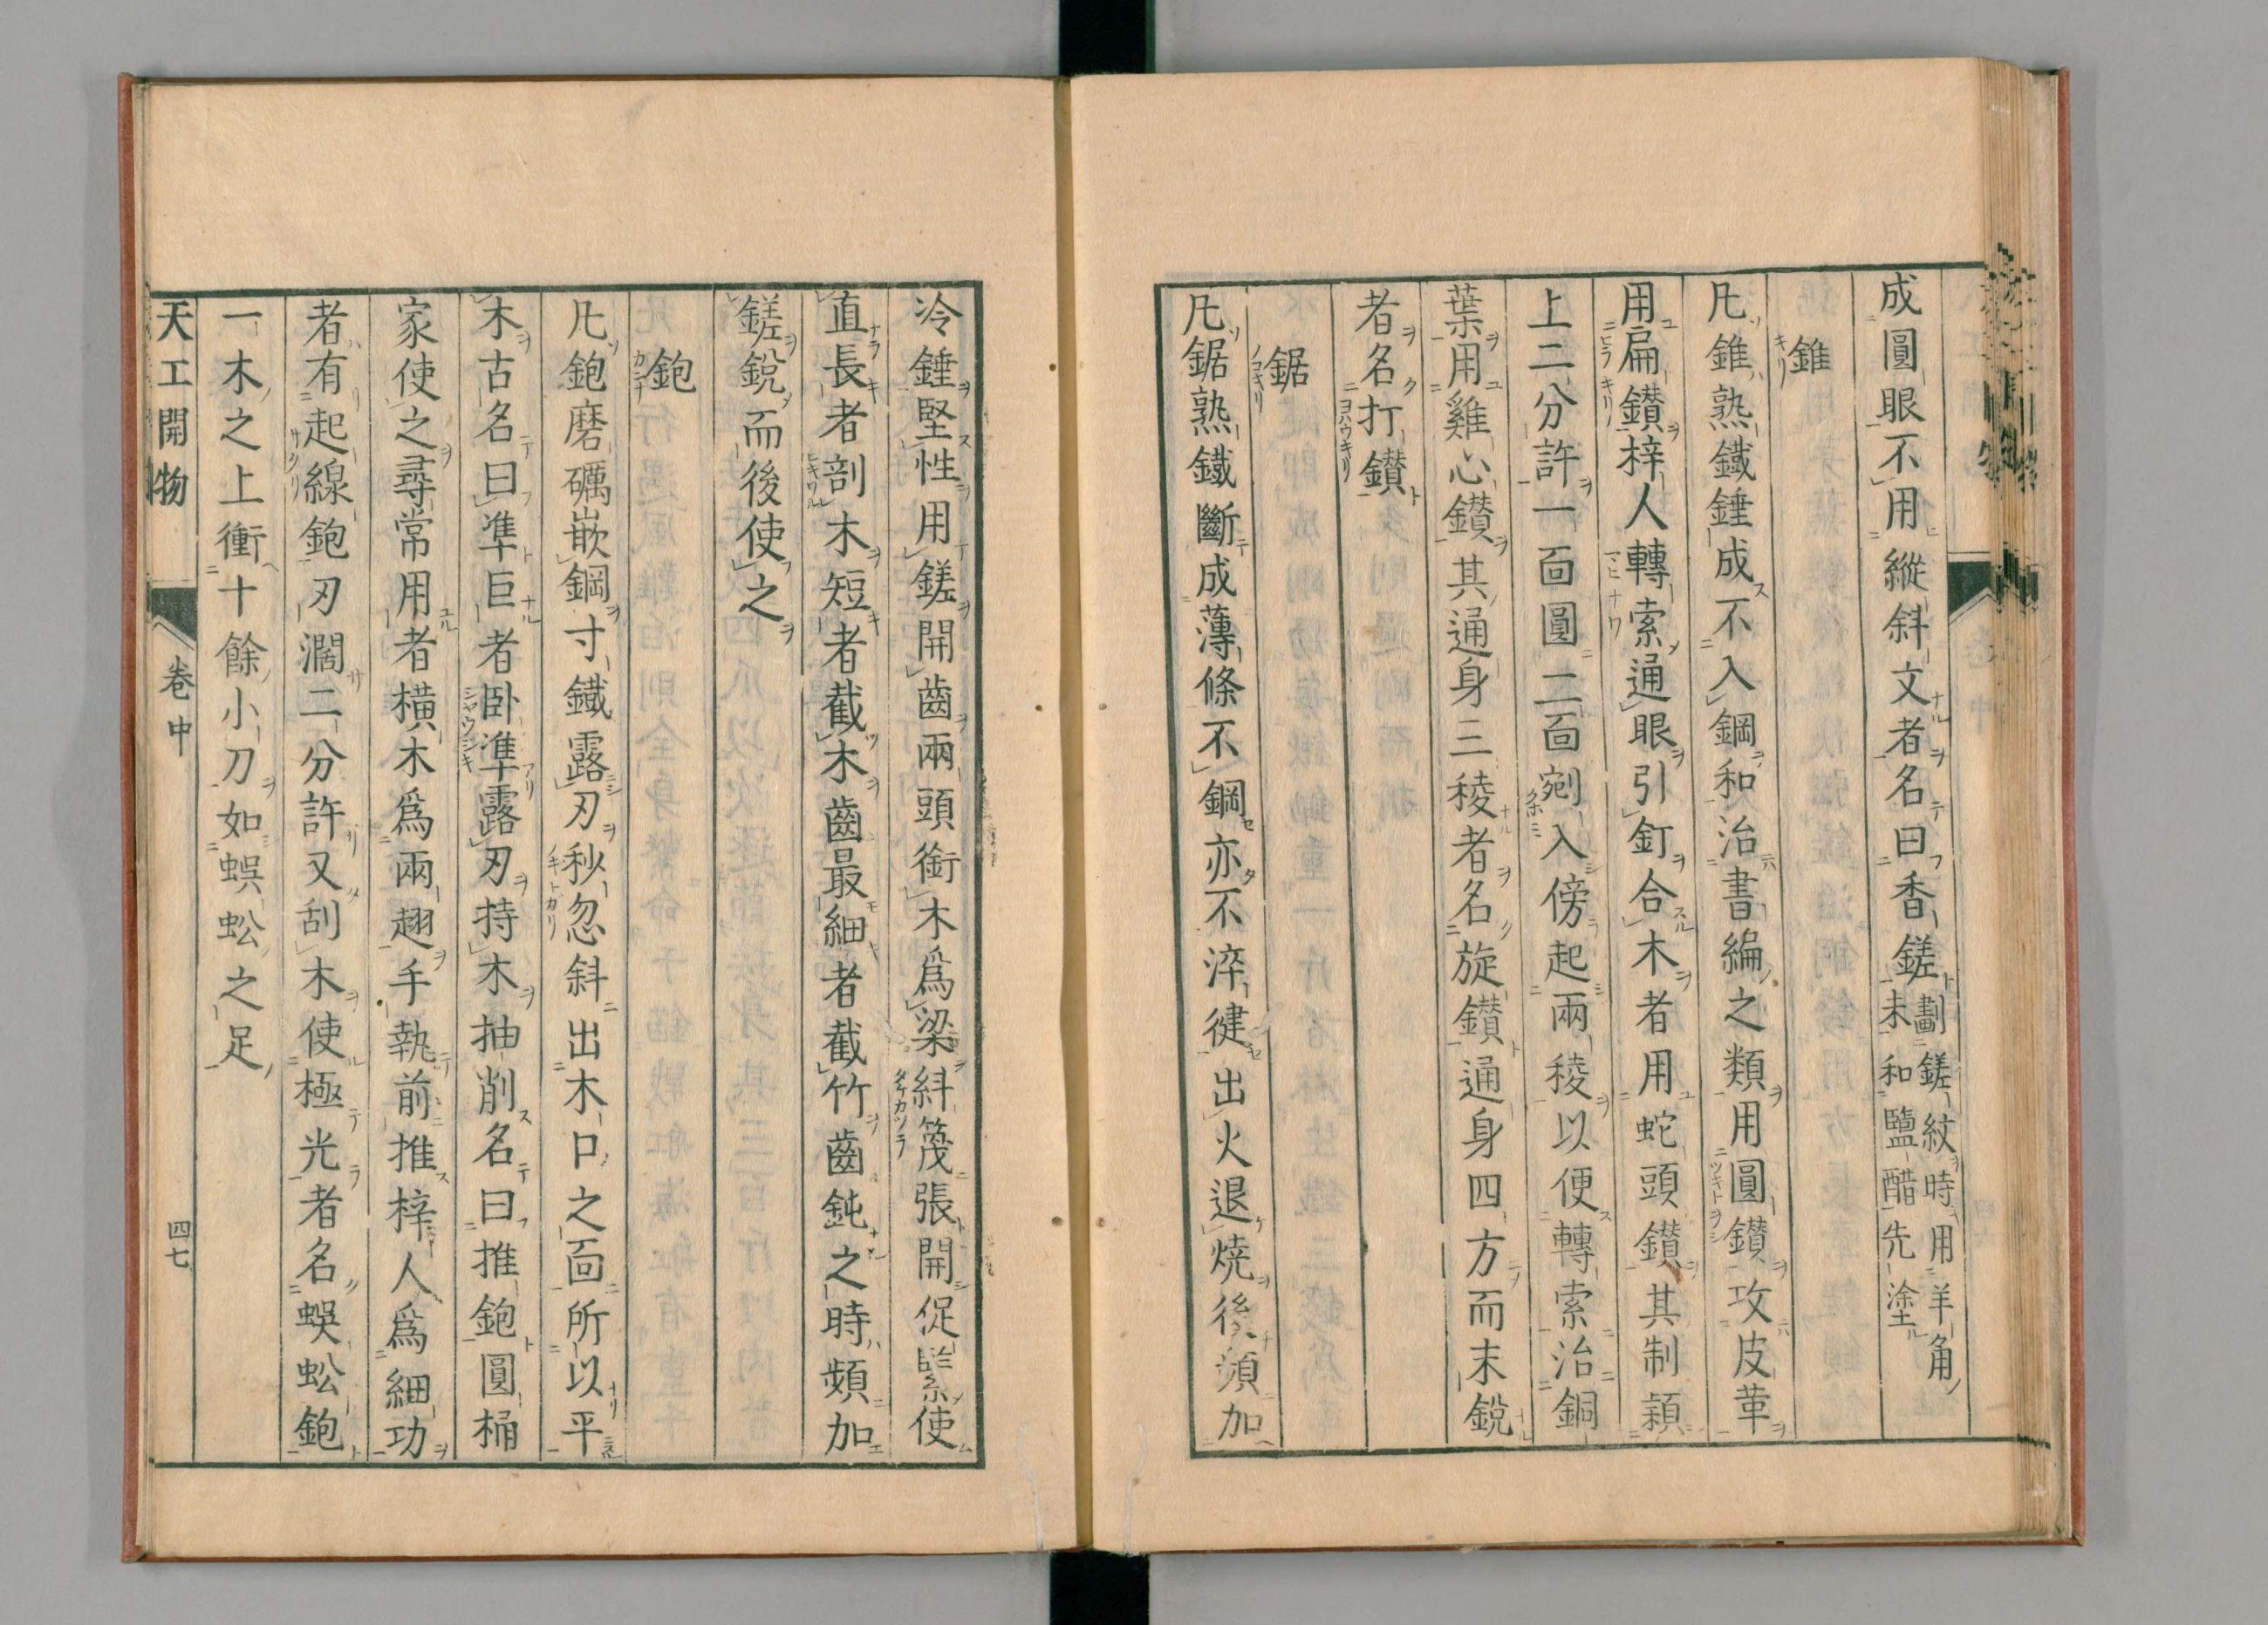 成圓眼不用縱斜文者名曰香鎈劃鎈紋時用羊角
末和鹽醋先塗
錐
凡錐熟鐵錘成不入鋼和治書編之類用圓鑽攻皮革
用扁鑽梓人轉索通眼引釘合木者用蛇頭鑽其制穎
上二分許一面圓二面剜入傍起兩稜以便轉索治銅
葉用雞心鑽其通身三稜者名旋鑽通身四方而末銳
者名打鑽
鋸
凡鋸熟鐵斷成薄條不鋼亦不淬健出火退燒後頻加
冷錘堅性用鎈開齒兩頭銜木爲梁糾篾張開促緊使
直長者剖木短者截木齒最細者截竹齒鈍之時頻加
鎈銳而後使之
鉋
凡鉋磨礪嵌鋼寸鐵露刃秒忽斜出木口之面所以平
木古名曰準巨者卧準露刃持木抽削名曰推鉋圓桶
家使之尋常用者橫木爲兩翅手執前推梓人爲細功
者有起線鉋刃濶二分許又刮木使極光者名蜈蚣鉋
一木之上衝十餘小刀如蜈蚣之足
天工開物
卷中
四七